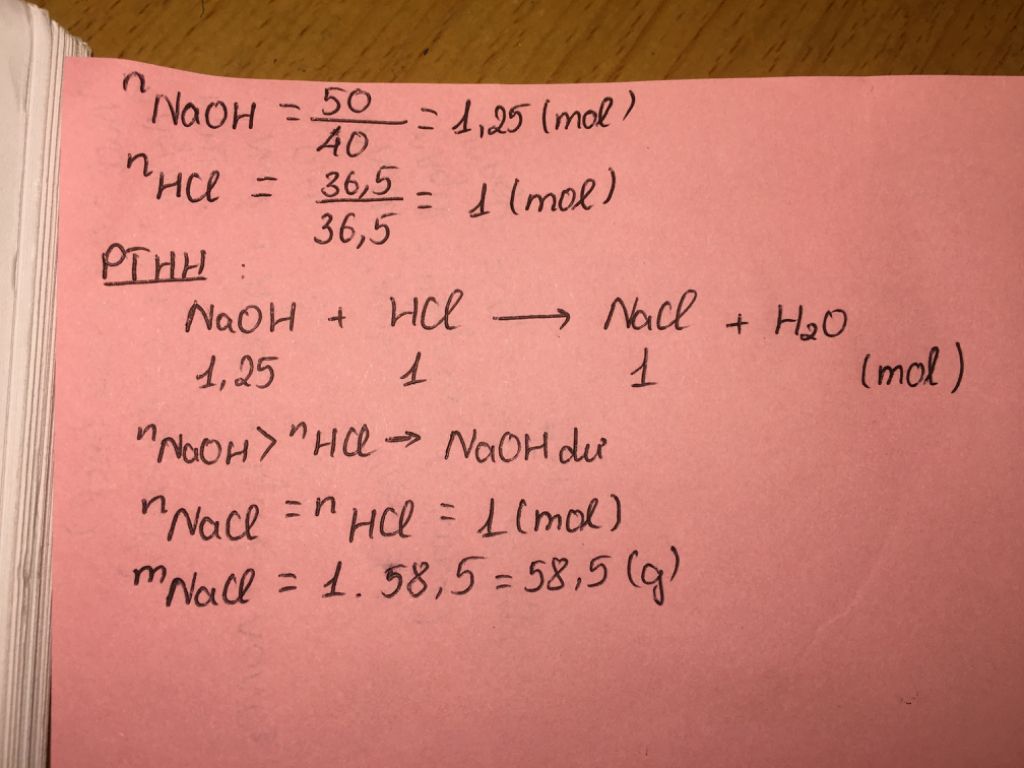 nNaOH = 50/40 = 1,25 (mol)
nHCl = 36,5/36,5 = 1 (mol)
PTHH :
NaOH + HCl → NaCl + H2O
1,25 1 1 (mol)
nNaOH > nHCl → NaOH dư
nNaCl = nHCl = 1 (mol)
mNaCl = 1. 58,5 = 58,5 (g)